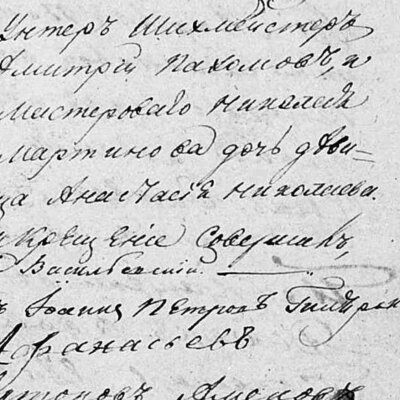 Унтеръ Шихмейстеръ
Дмитрій Пахомовъ, и
Мастероваго Николая
Мартинова дочь дѣви=
ца Анастасія Николаева.
Крещеніе Совершалъ,
Васильевскій.
Іоаннъ Петровъ
Афанасьевъ